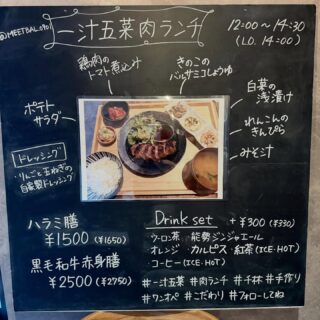 @MEETBAL.490
一汁五菜肉ランチ
12:00〜14:30
(L.O. 14:00)
鶏肉の
トマト煮込み
きのこの
バルサミコしょうゆ
白菜の
浅漬け
ポテト
サラダ
れんこんの
きんぴら
みそ汁
ドレッシング
りんごと玉ねぎの
自家製ドレッシング
ハラミ膳
¥1500 (¥1650)
黒毛和牛赤身膳
¥2500 (¥2750)
Drink set +¥300 (¥330)
ウーロン茶 能勢ジンジャエール
オレンジ カルピス・紅茶(ICE・HOT)
コーヒー(ICE・HOT)
#一汁五菜 #肉ランチ #千林 #手作り
#ワンオペ #こだわり #フォローしてね